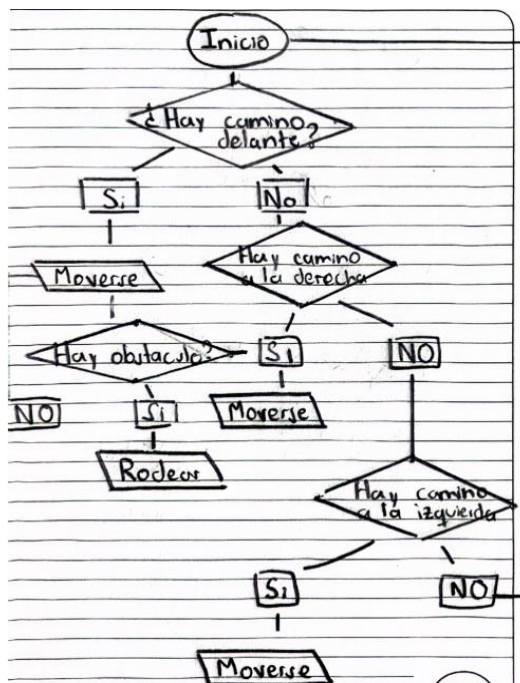 Inicio
¿Hay camino
delante?
Si
No
Moverse
Hay camino
a la derecha
Hay obstaculo?
Si
NO
NO
Si
Moverse
Rodear
Hay camino
a la izquierda
Si
NO
Moverse